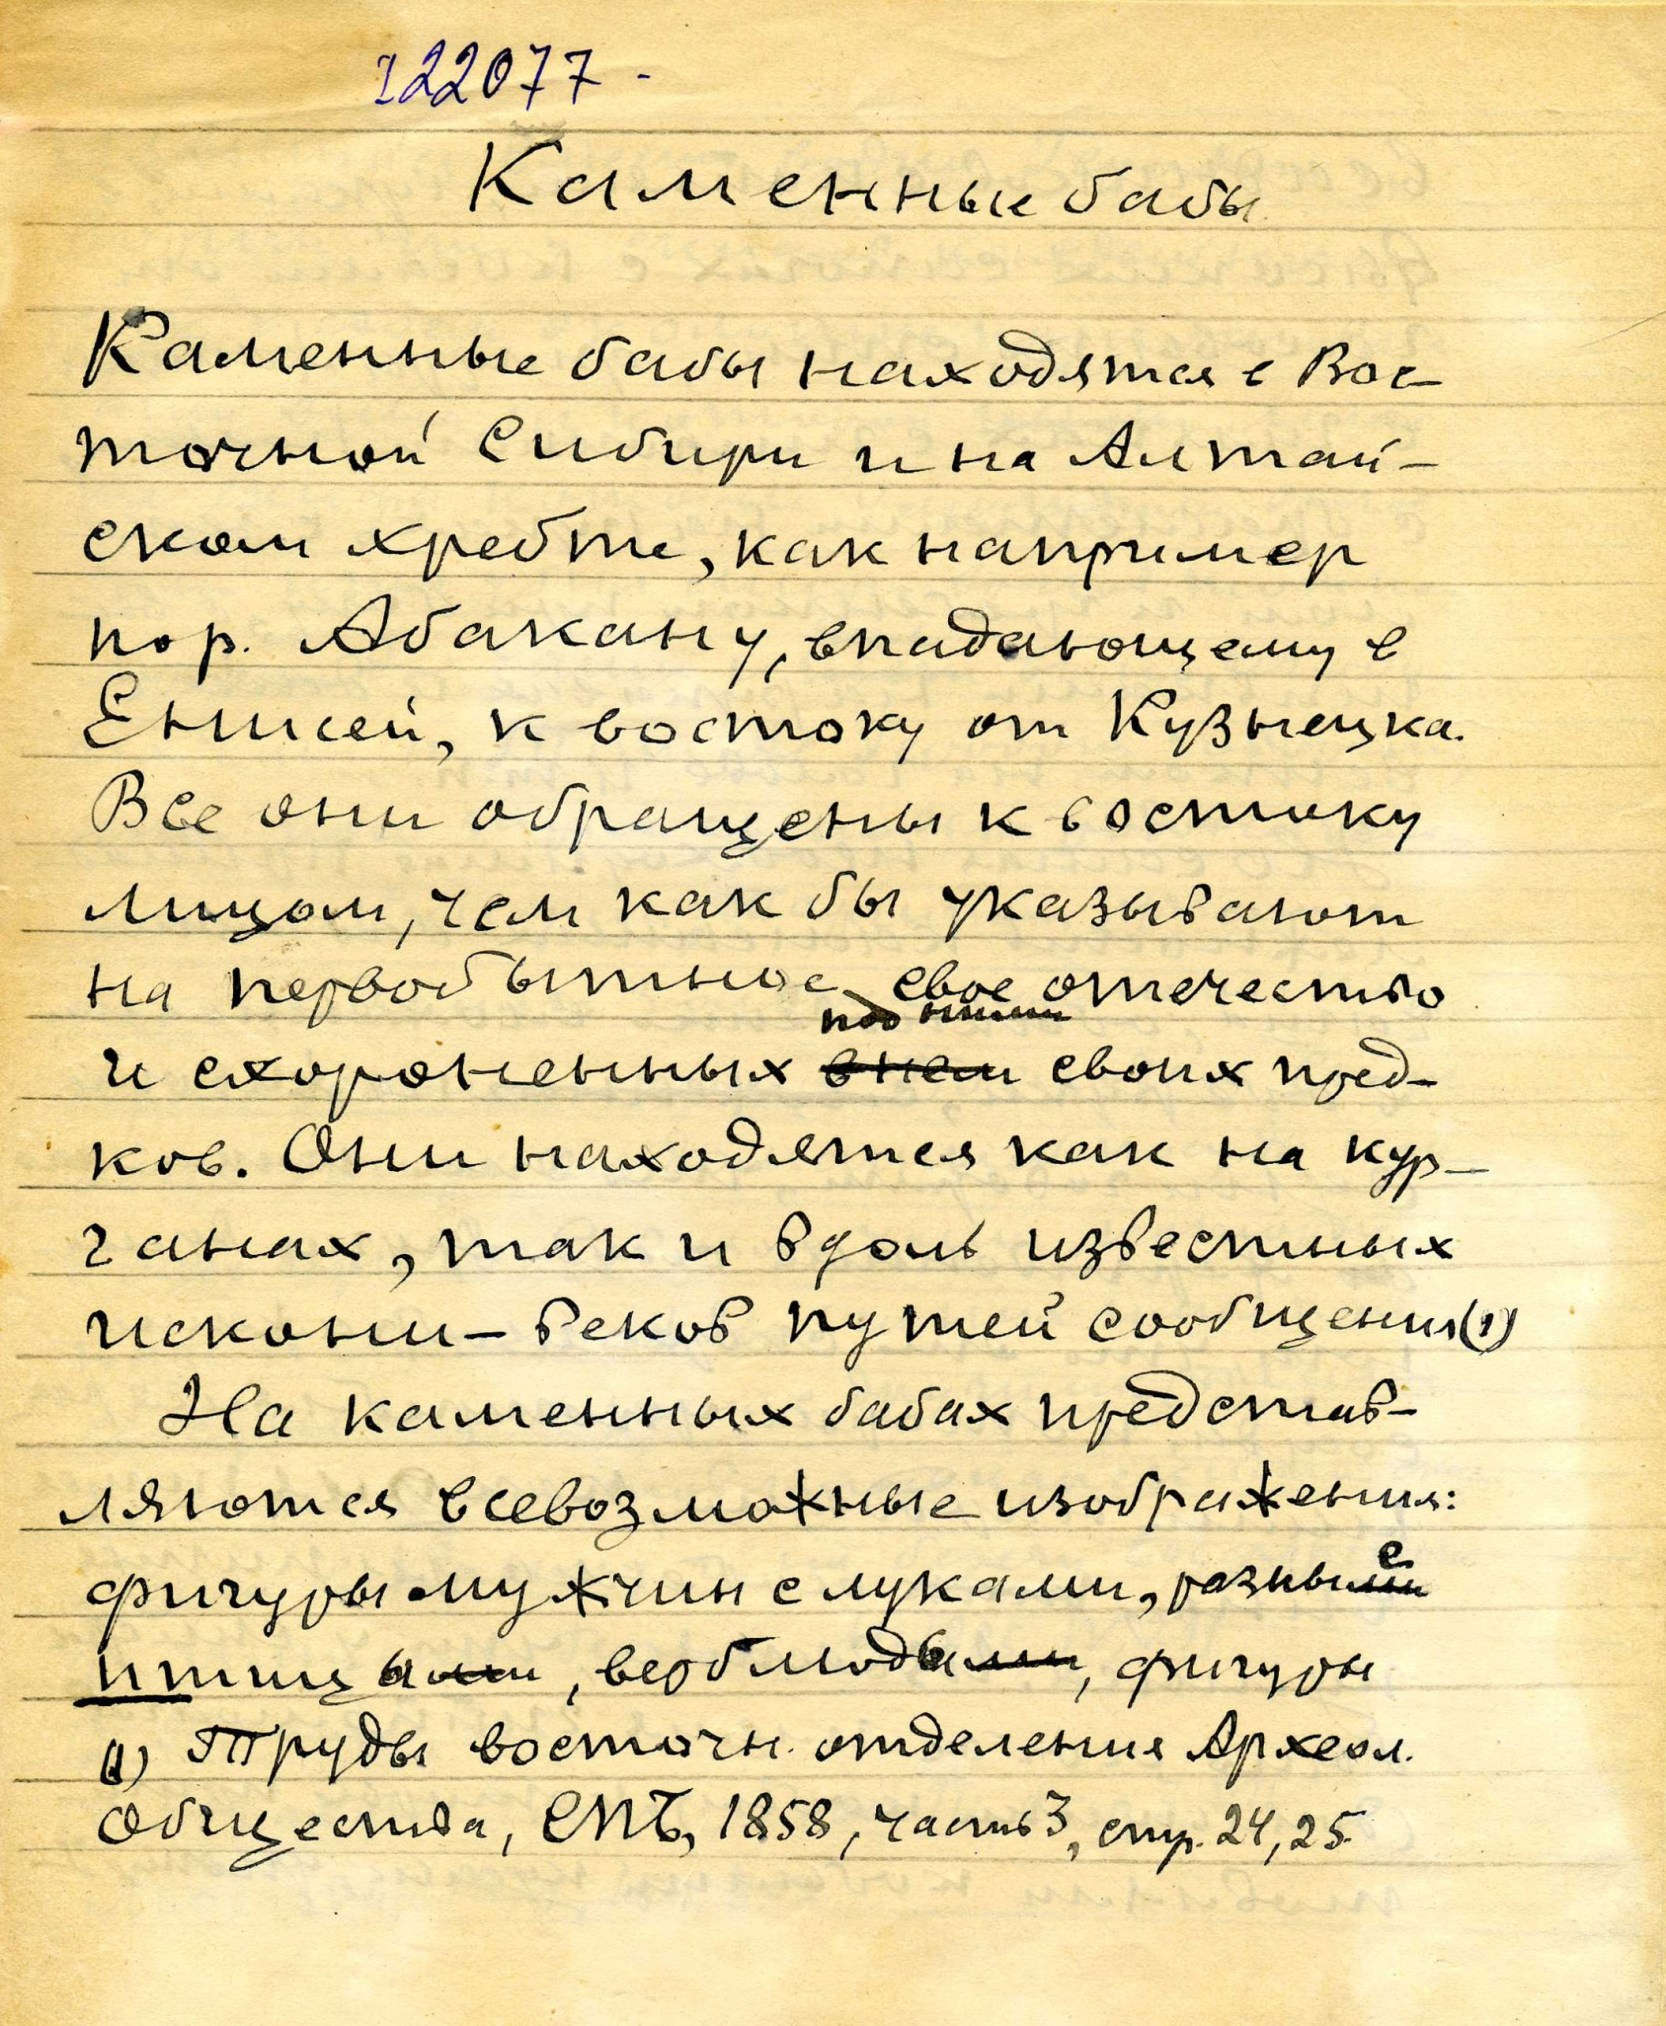 122077 -
Каменные бабы
Каменные бабы находятся в Вос-
точной Сибири и на Алтай-
ском хребте, как например
по р. Абакану, впадающему в
Енисей, к востоку от Кузнецка.
Все они обращены к востоку
лицом, чем как бы указывают
на первобытное свое отечество
под ними
и схороненных в нем своих пред-
ков. Они находятся как на кур-
ганах, так и вдоль известных
искони-веков путей сообщения (1)
На каменных бабах представ-
ляются всевозможные изображения:
фигуры мужчин с луками, разные
птицы, верблюды, фигуры
(1) Труды восточн. отделения Археол.
Общества, СПБ, 1858, часть 3, стр. 24, 25.